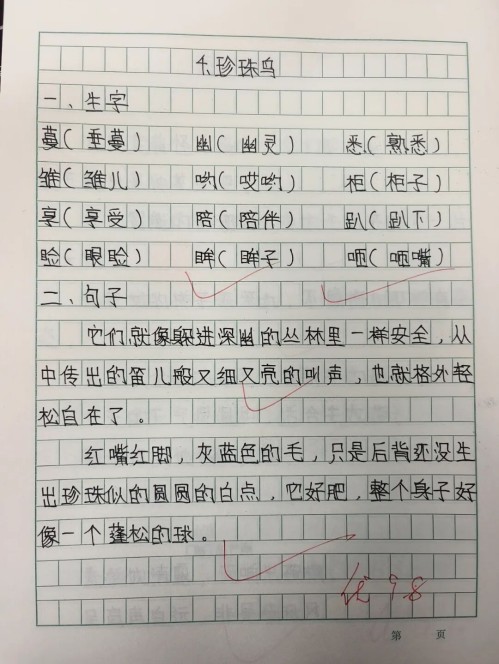 4、珍珠鸟
一、生字
蔓(垂蔓) 幽(幽灵) 悉(熟悉)
雏(雏儿) 哟(哎哟) 柜(柜子)
享(享受) 陪(陪伴) 趴(趴下)
睑(眼睑) 眸(眸子) 咂(咂嘴)
二、句子
它们就像躲进深幽的丛林里一样安全,从
中传出的笛儿般又细又亮的叫声,也就格外轻
松自在了。
红嘴红脚,灰蓝色的毛,只是后背还没生
出珍珠似的圆圆的白点,它好肥,整个身子好
像一个蓬松的球。
优 98
第 页